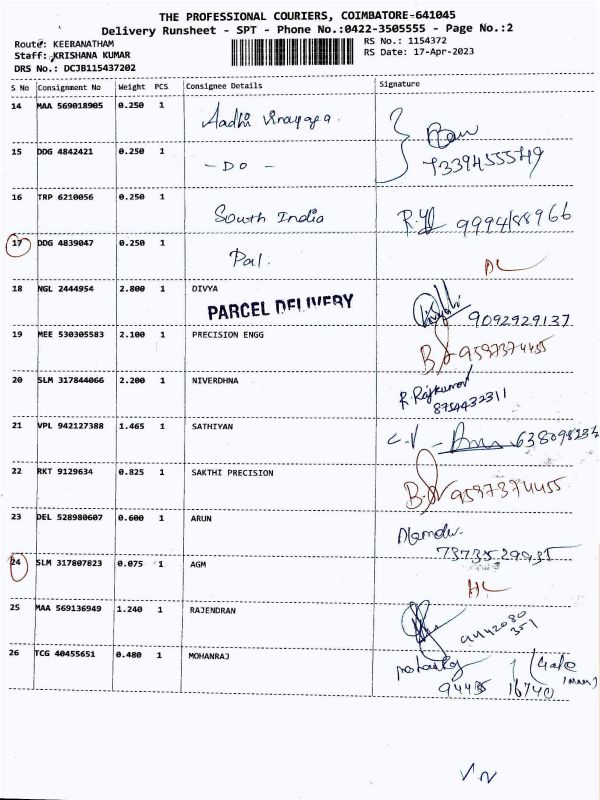 THE PROFESSIONAL COURIERS, COIMBATORE-641045
Delivery Runsheet - SPT - Phone No.:0422-3505555 - Page No.:2
Route: KEERANATHAM
RS No.: 1154372
Staff: KRISHANA KUMAR
RS Date: 17-Apr-2023
DRS No.: DCJB115437202
S No Consignment No Weight PCS Consignee Details Signature
14 MAA 569018905 0.250 1 Aadhi Vinayaga.
15 DDG 4842421 0.250 1 - DO -
16 TRP 6210056 0.250 1 South India 9994188966
17 DDG 4839047 0.250 1 Pal. DL
18 NGL 2444954 2.800 1 DIVYA 9092929137
PARCEL DELIVERY
19 MEE 530305583 2.100 1 PRECISION ENGG 9597374455
20 SLM 317844066 2.200 1 NIVERDHNA R. Rajkumar
8754432311
21 VPL 942127388 1.465 1 SATHIYAN C.V -
22 RKT 9129634 0.825 1 SAKTHI PRECISION 9597374455
23 DEL 528980607 0.600 1 ARUN
24 SLM 317807823 0.075 1 AGM
25 MAA 569136949 1.240 1 RAJENDRAN 9442080
351
26 TCG 40455651 0.480 1 MOHANRAJ
94435 16740